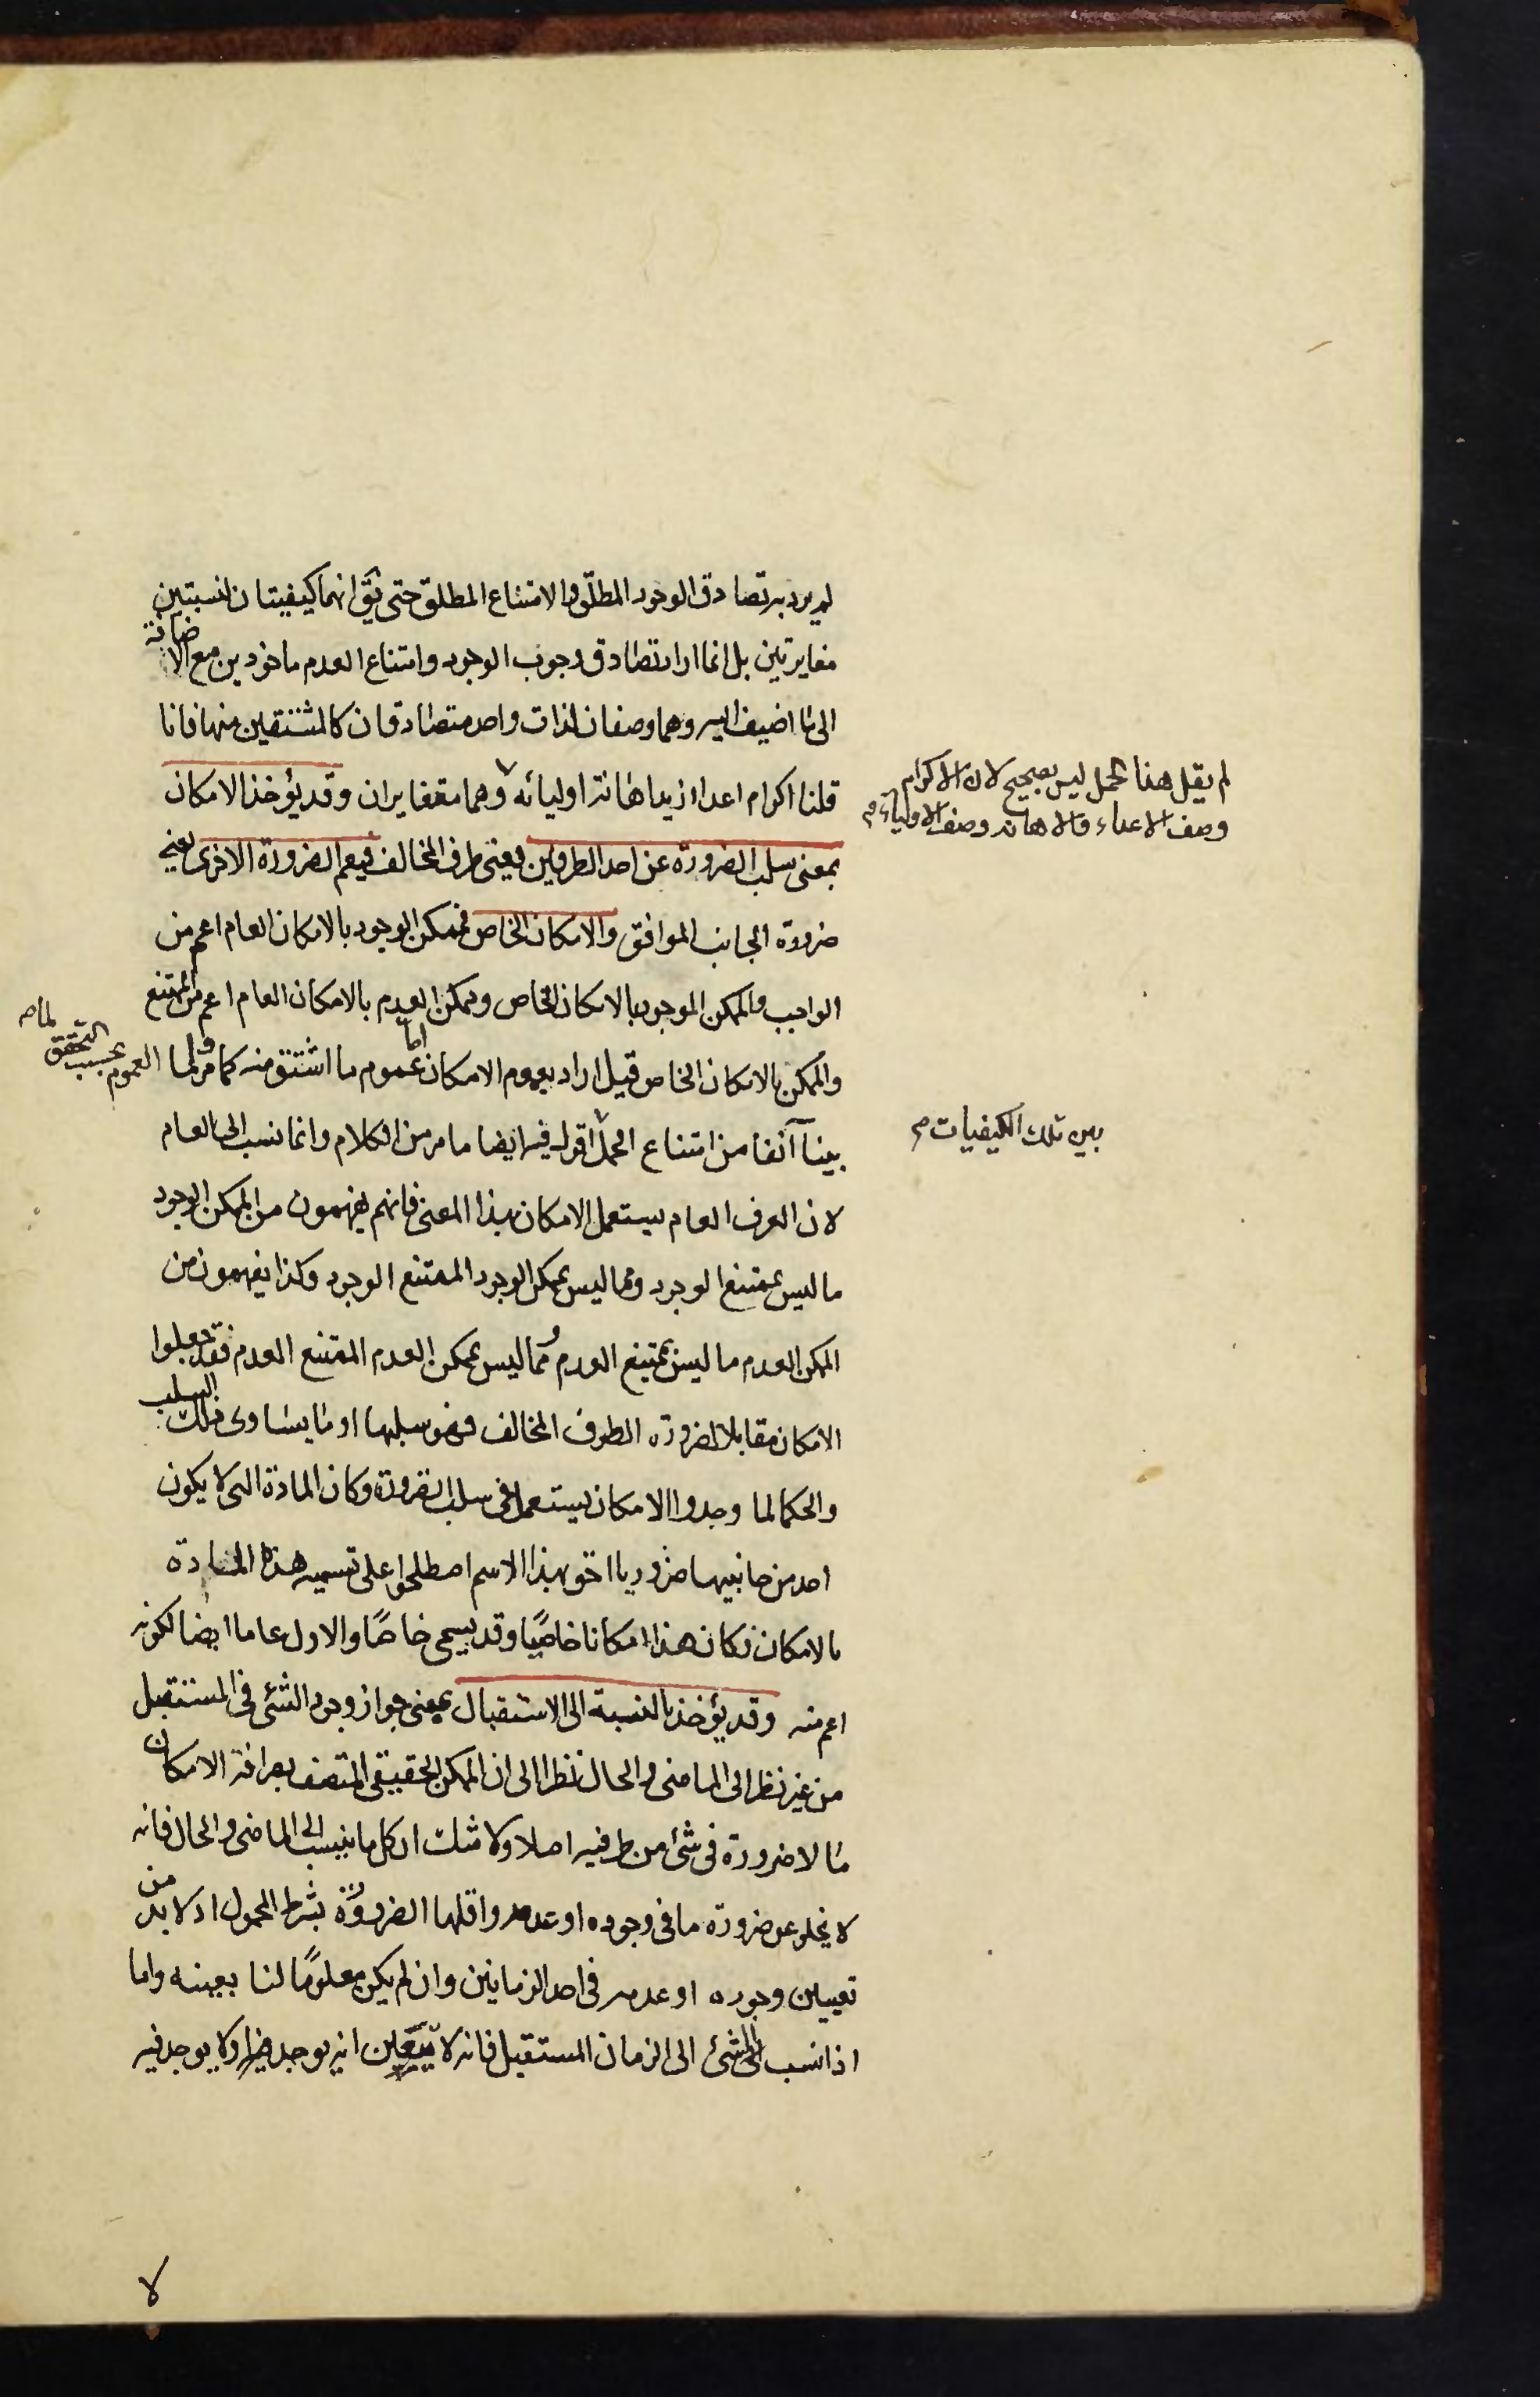 لم يرد به تصادق الوجود المطلق والامتناع المطلق حتى يق انهما كيفيتان لنسبتين
مغايرتين بل انما اراد تصادق وجوب الوجود وامتناع العدم ماخوذين مع الاضافة
الى ما اضيف اليه وهما وصفان لذات واحد متصادقان كالمشتقين منهما فانا
قلنا اكرام اعداء زيد اهانة اوليائه وهما متغايران وقد يؤخذ الامكان
لم يقل هذا الحمل ليس بصحيح لان الاكرام
وصف الاعداء والاهانه وصف الاولياء م
بمعنى سلب الضرورة عن احد الطرفين يعنى طرف المخالف فيعم الضرورة الاخرى يعنى
ضرورة الجانب الموافق والامكان الخاص فممكن الوجود بالامكان العام اعم من
الواجب والممكن الموجود بالامكان الخاص وممكن العدم بالامكان العام اعم من الممتنع
والممكن بالامكان الخاص قيل اراد بعموم الامكان عموم ما اشتق منه كما مر ولما
اما
العموم بحسب التحقق لما مر
بينا آنفا من امتناع الحمل اقول فيه ايضا ما مر من الكلام وانما نسب الى العام
بين تلك الكيفيات م
لان العرف العام يستعمل الامكان بهذا المعنى فانهم يفهمون من الممكن الوجود
ما ليس بممتنع الوجود ومما ليس بممكن الوجود الممتنع الوجود وكذا يفهمون من
الممكن العدم ما ليس بممتنع العدم ومما ليس بممكن العدم الممتنع العدم فقد جعلوا
الامكان مقابلا لضرورة الطرف المخالف فهو سلبها او ما يساوى ذلك السلب
والحكما لما وجدوا الامكان يستعمل فى سلب الضرورة وكان المادة التى لا يكون
احد من جانبيها ضروريا احق بهذا الاسم اصطلحوا على تسميه هذه المادة
بالامكان فكان هذا امكانا خاصيًا وقد يسمى خاصًا والاول عاما ايضا لكونه
اعم منه وقد يؤخذ بالنسبة الى الاستقبال بمعنى جواز وجود الشئ فى المستقبل
من غير نظر الى الماضى والحال نظرا الى ان الممكن الحقيقى المتصف بصرافة الامكان
ما لا ضرورة فى شئ من طرفيه اصلا ولا شك ان كل ما ينسب الى الماضى والحال فانه
لا يخلو عن ضرورة ما فى وجوده او عدمه واقلها الضرورة بشرط المحمول اذ لا بد من
تعيين وجوده او عدمه فى احد الزمانين وان لم يكن معلومًا لنا بعينه واما
اذا نسب الشئ الى الزمان المستقبل فانه لا يتعين انه يوجد فيه او لا يوجد فيه
لا